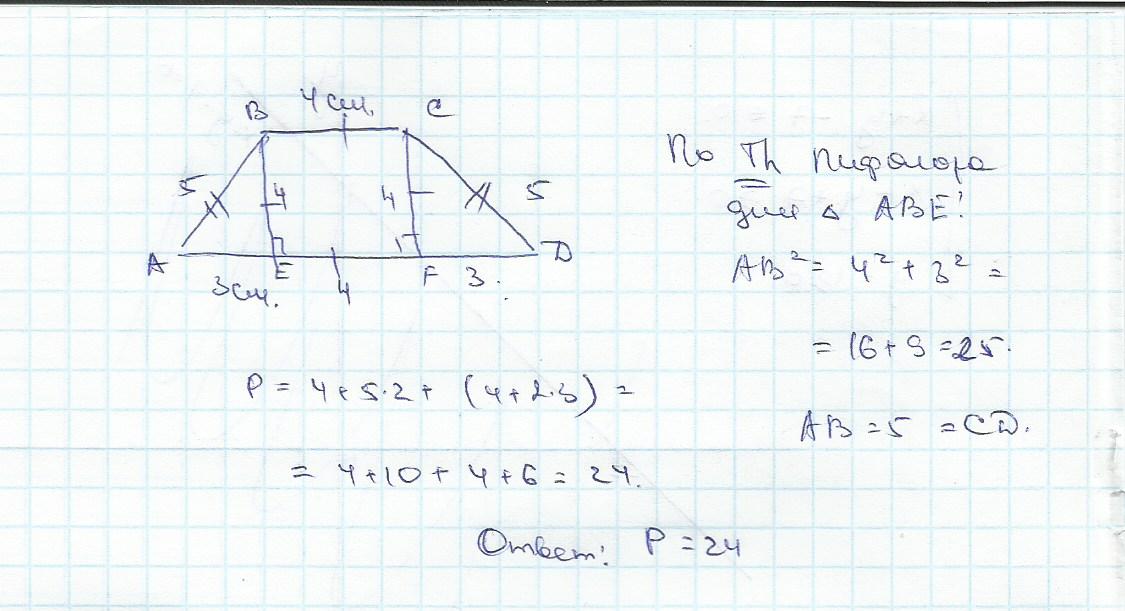 B 4 см. C
5 4 4 5
A E F D
3 см. 4 3.
По Th Пифагора
для △ ABE:
AB² = 4² + 3² =
= 16 + 9 = 25.
AB = 5 = CD.
P = 4 + 5·2 + (4 + 2·3) =
= 4 + 10 + 4 + 6 = 24.
Ответ: P = 24